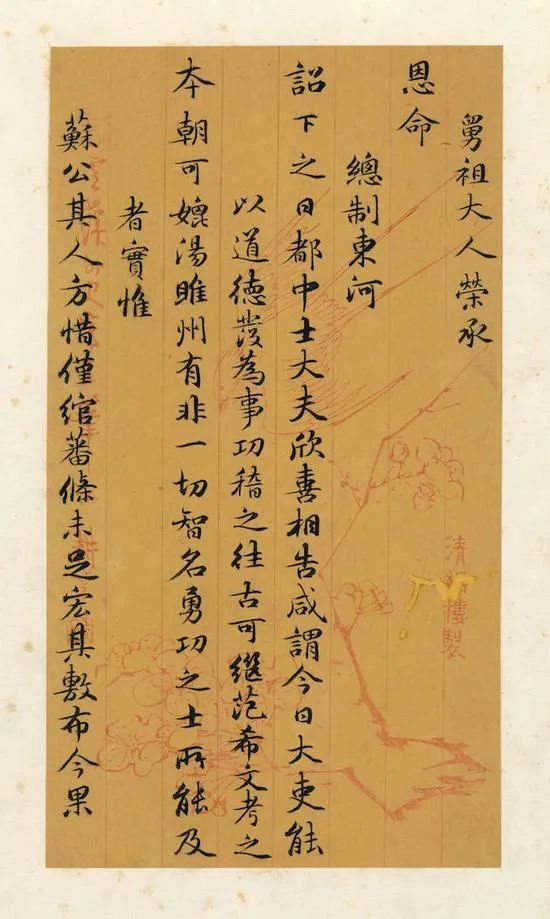 舅祖大人榮承
恩命
總制東河
詔下之日都中士大夫欣喜相告咸謂今日大吏能
以道德發為事功稽之往古可繼范希文考之
本朝可媲湯睢州有非一切智名勇功之士所能及
者實惟
蘇公其人方惜僅綰蕃條未足宏其敷布今果
清 樓製